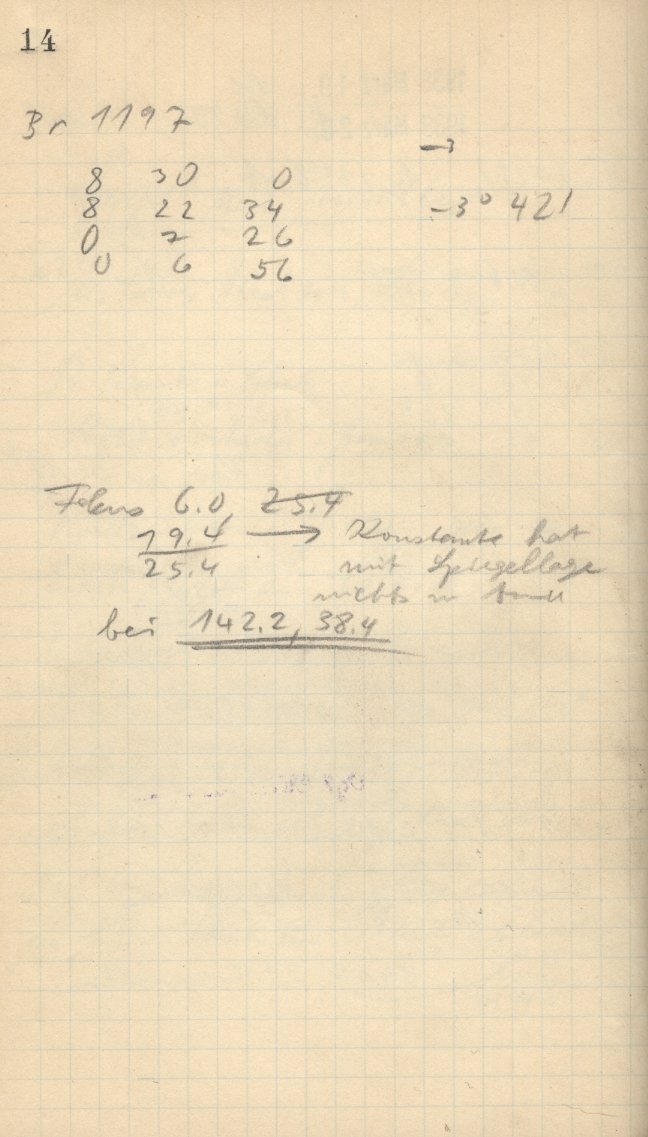 14
Br 1197
8 30 0
8 22 34 -3° 421
0 7 26
0 6 56
Fokus 6.0, 25.4
19.4 → Konstante hat
25.4 mit Spiegellage
nichts zu tun
bei 142.2, 38.4